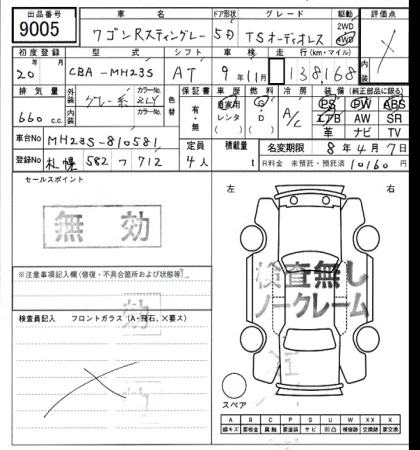 出品番号 車名 ドア形状 グレード 駆動 評価点
9005 ワゴンRスティングレー 5D TSオーディオレス 2WD 4WD ×
初度登録 型式 シフト 車検 走行(km・マイル)
20年 月 CBA-MH23S AT 9年11月 138,168
排気量 外装 内装 カラーNo. 色替 保証書 車歴 燃料 冷房 装備(純正部品に限る)
660 c.c. グレー系 カラーNo. ZLY 有・無 自家用 レンタ ( ) G・D A/C PS PW ABS
エアB AW SR
革 ナビ TV
車台No MH23S-810581 定員 積載量 名変期限 8年4月7日
登録No 札幌 582 つ 712 4人 t R料金 未預託・預託済 10160円
セールスポイント
無効
左 右
※注意事項記入欄(修復・不具合箇所および状態等)
検査無し
ノークレーム
検査員記入 フロントガラス(A・飛石、×要ス)
×
スペア
A B C P S U W XX X
線キズ 要板金 腐触 要塗装 サビ 凹凸 補修跡 交換跡 要交換